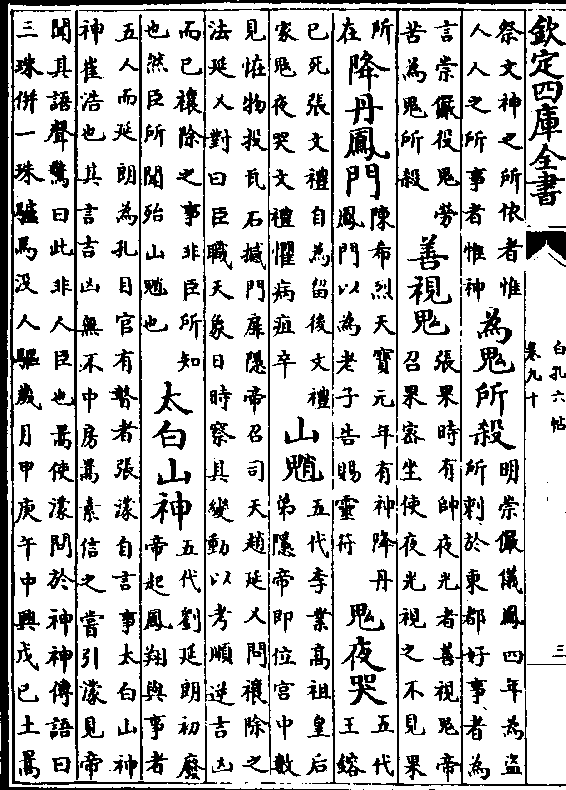 欽定四庫全書
白孔六帖
卷九十
三
祭文神之所依者惟
人人之所事者惟神
為鬼所殺
明崇儼儀鳳四年為盜
所刺於東都好事者為
言崇儼役鬼勞
苦為鬼所殺
善視鬼
張果時有帥夜光者善視鬼帝
召果密坐使夜光視之不見果
所
在
降丹鳳門
陳希烈天寶元年有神降丹
鳳門以為老子告賜靈符
鬼夜哭
五代
王鎔
已死張文禮自為留後文禮
家鬼夜哭文禮懼病疽卒
山魈
五代李業高祖皇后
弟隱帝即位宮中數
見恠物投瓦石撼門扉隱帝召司天趙延乂問禳除之
法延乂對曰臣職天象日時察其變動以考順逆吉凶
而已禳除之事非臣所知
也然臣所聞殆山魈也
太白山神
五代劉延朗初廢
帝起鳳翔與事者
五人而延朗為孔目官有瞽者張濛自言事太白山神
神崔浩也其言吉凶無不中房暠素信之嘗引濛見帝
聞其語聲驚曰此非人臣也暠使濛問於神神傳語曰
三珠併一珠驢馬沒人驅歲月甲庚午中興戊己土暠